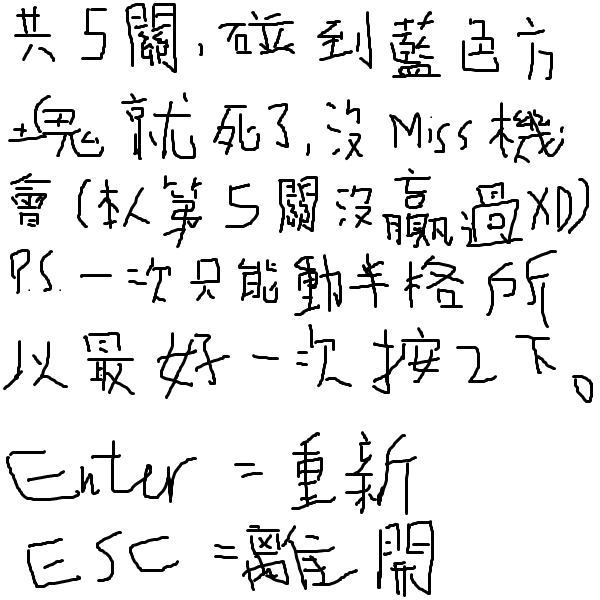 共5關,碰到藍色方
塊就死了,沒Miss機
會(本人第5關沒贏過XD)
P.S.一次只能動半格所
以最好一次按2下。
Enter=重新
ESC=離開